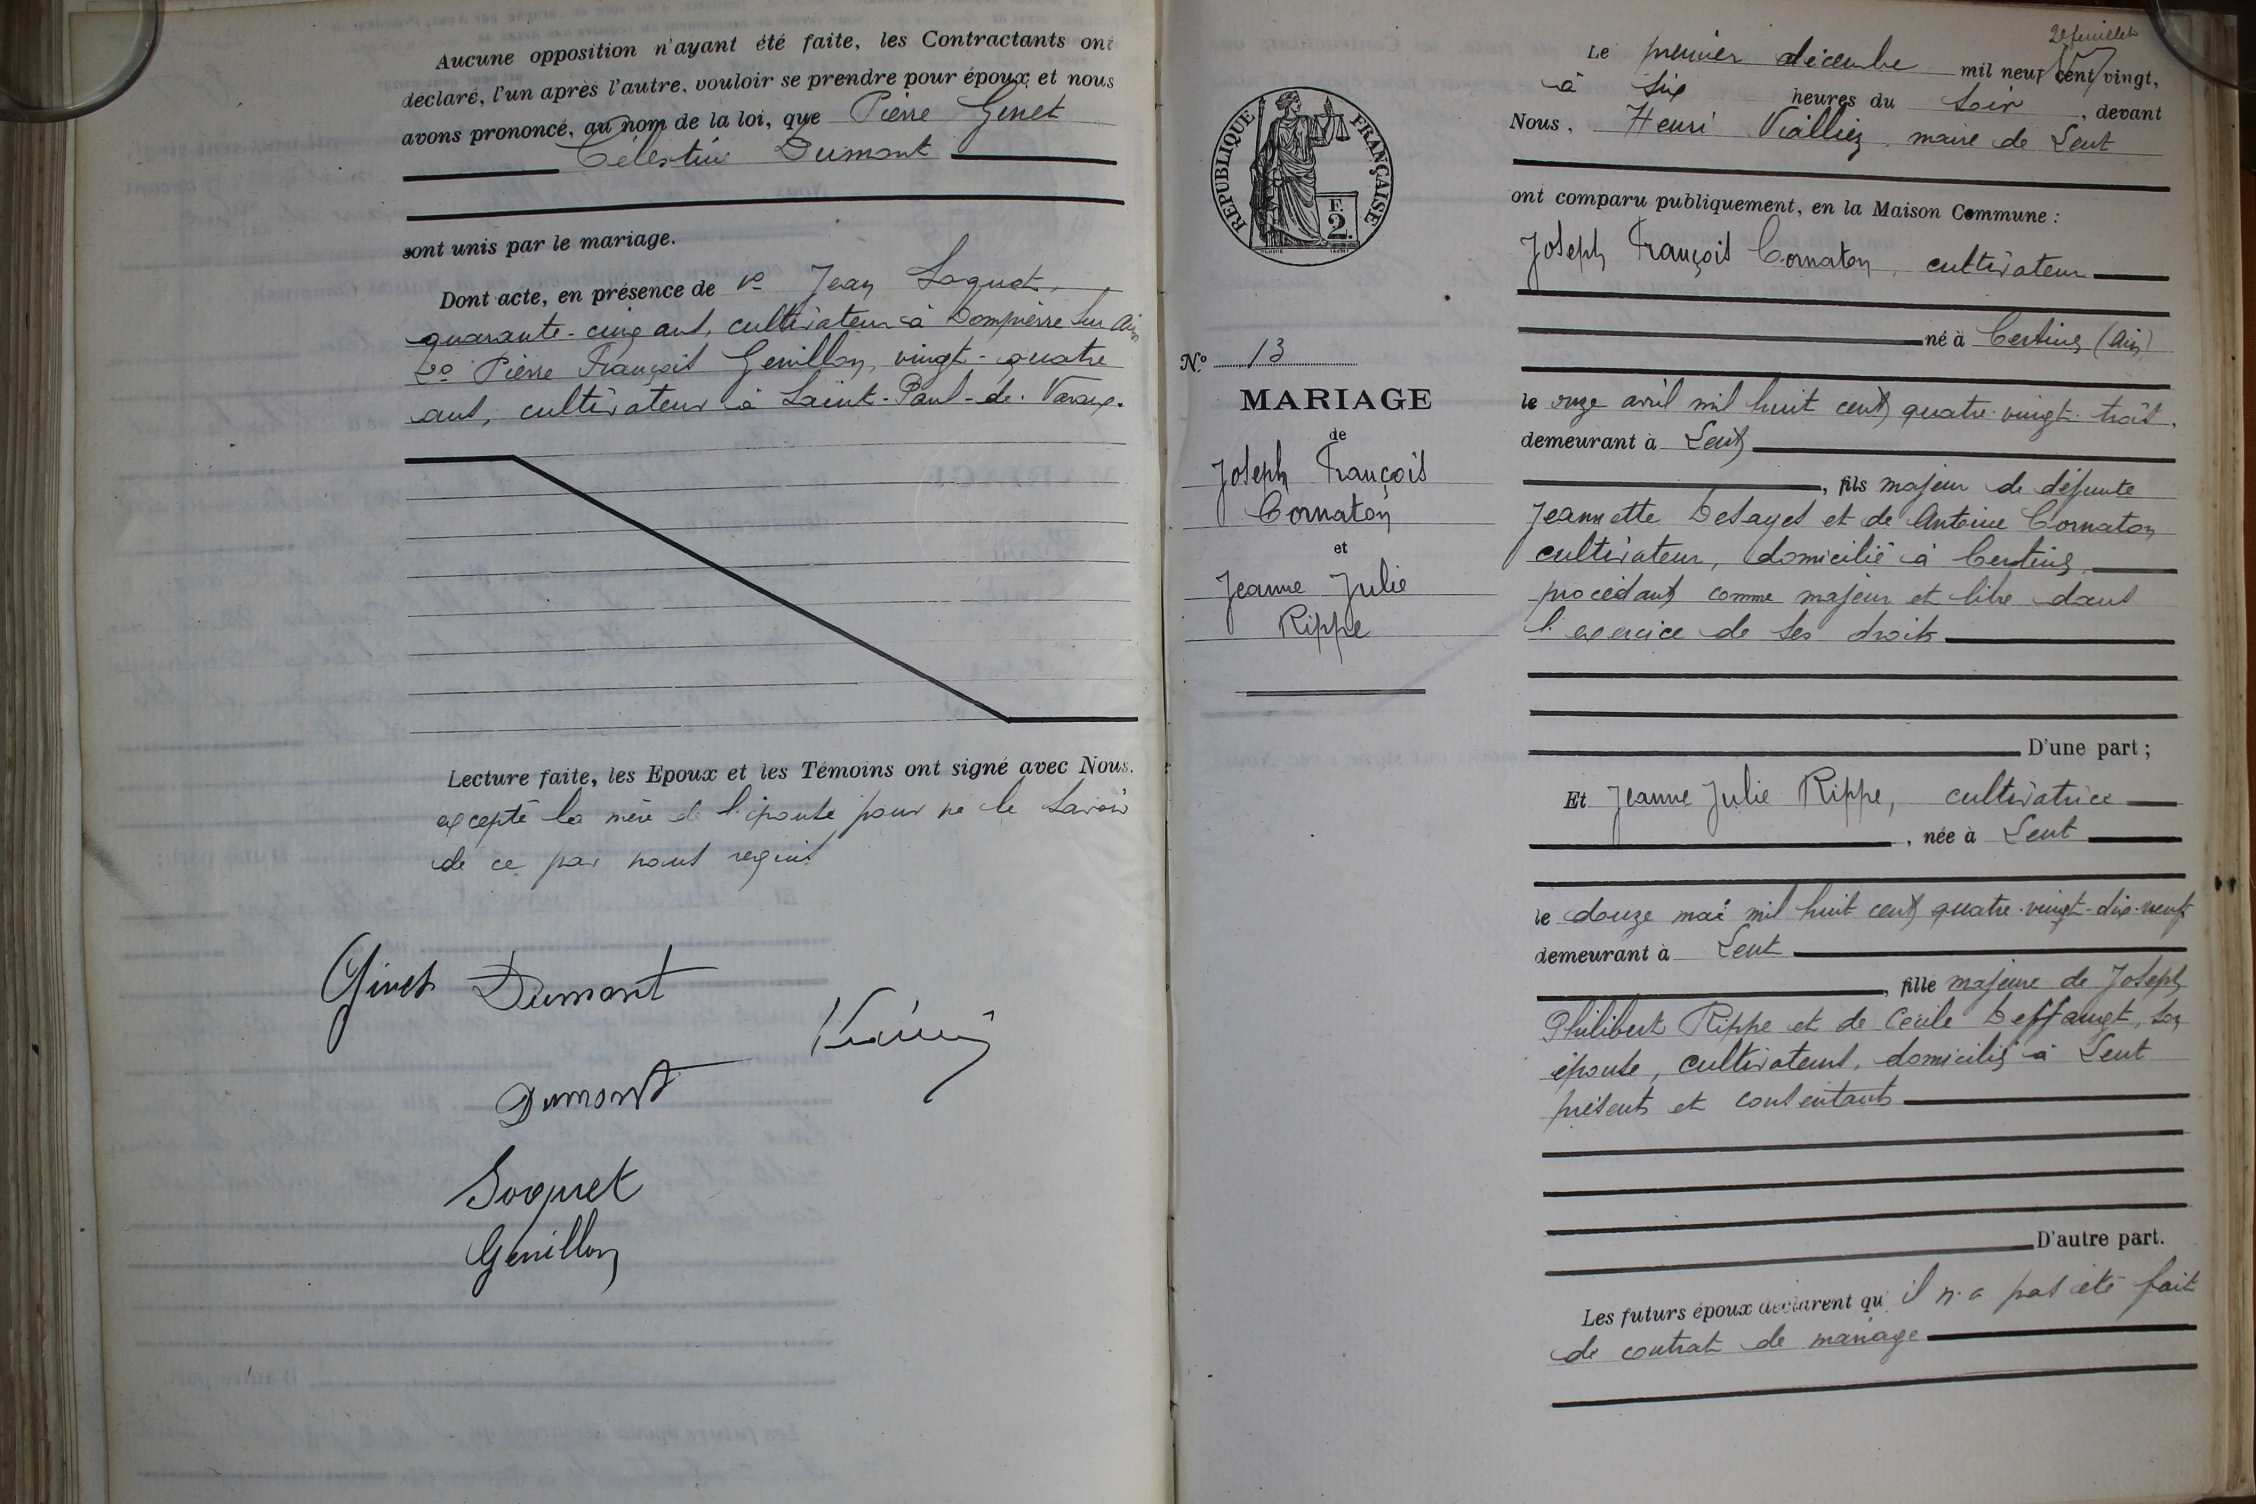 Aucune opposition n'ayant été faite, les Contractants ont
déclaré, l'un après l'autre, vouloir se prendre pour époux, et nous
avons prononcé, au nom de la loi, que Pierre Genet
Célestine Dumont
sont unis par le mariage.
Dont acte, en présence de 1º Jean Soquet,
quarante-cinq ans, cultivateur à Dompierre sur Ain
2º Pierre François Genillon, vingt-quatre
ans, cultivateur à Saint-Paul-de-Varax.
Lecture faite, les Epoux et les Témoins ont signé avec Nous.
excepté la mère de l'épouse pour ne le savoir
de ce par nous requis
Ginet Dumont
Dumont
Soquet
Genillon
REPUBLIQUE FRANÇAISE
F.
2.
Nº 13
MARIAGE
de
Joseph François
Cornaton
et
Jeanne Julie
Rippe
2e feuillet
Le premier décembre mil neuf cent vingt,
à six heures du soir, devant
Nous, Henri Vialliez maire de Lent
ont comparu publiquement, en la Maison Commune :
Joseph François Cornaton, cultivateur
né à Certines (Ain)
le onze avril mil huit cent quatre-vingt-trois,
demeurant à Lent
, fils majeur de défunte
Jeannette Desayes et de Antoine Cornaton
cultivateur, domicilié à Certines
procédant comme majeur et libre dans
l'exercice de ses droits
D'une part ;
Et Jeanne Julie Rippe, cultivatrice
, née à Lent
le douze mai mil huit cent quatre-vingt-dix-neuf
demeurant à Lent
, fille majeure de Joseph
Philibert Rippe et de Cécile Deffanget, son
épouse, cultivateurs, domiciliés à Lent
présents et consentants
D'autre part.
Les futurs époux déclarent qu'il n'a pas été fait
de contrat de mariage